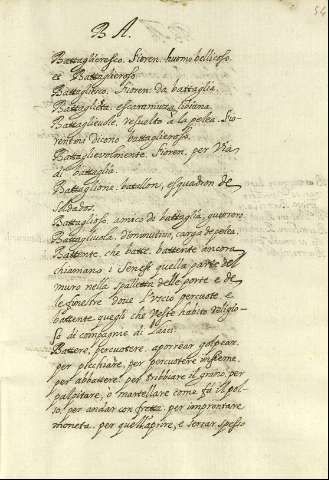 BA.
54
Battaglieresco. Fioren. huomo bellicoso
et Battaglieroso
Battagliesco. Fioren. Da battaglia.
Battaglieta. escaramuza liviana.
Battaglieuole. resuelto à la pelea. Fio-
rentini dicono battaglieroso.
Battaglieuolmente. Fioren. per Via
di battaglia.
Battaglione. batallon, esquadron de
Soldados.
Battaglioso. amico di battaglia, guerrero
Battagliuola. diminutiuo, carga de pelea.
Battente. che batte. battente ancora
chiamano i Senesi quella parte del
muro nella spalletta delle porte e de
le finestre doue l'uscio percuote. e
battente quegli che Veste habito religio-
so di compagnie di Laici.
Battere. percuotere. aporrear golpear.
per picchiare. per percuotere insieme.
per abbattere. per tribbiare il grano. per
palpitare, ò martellare come fà il pol-
so. per andar con fretta. per improntare
moneta. per quell'aprire, e serrar spesso